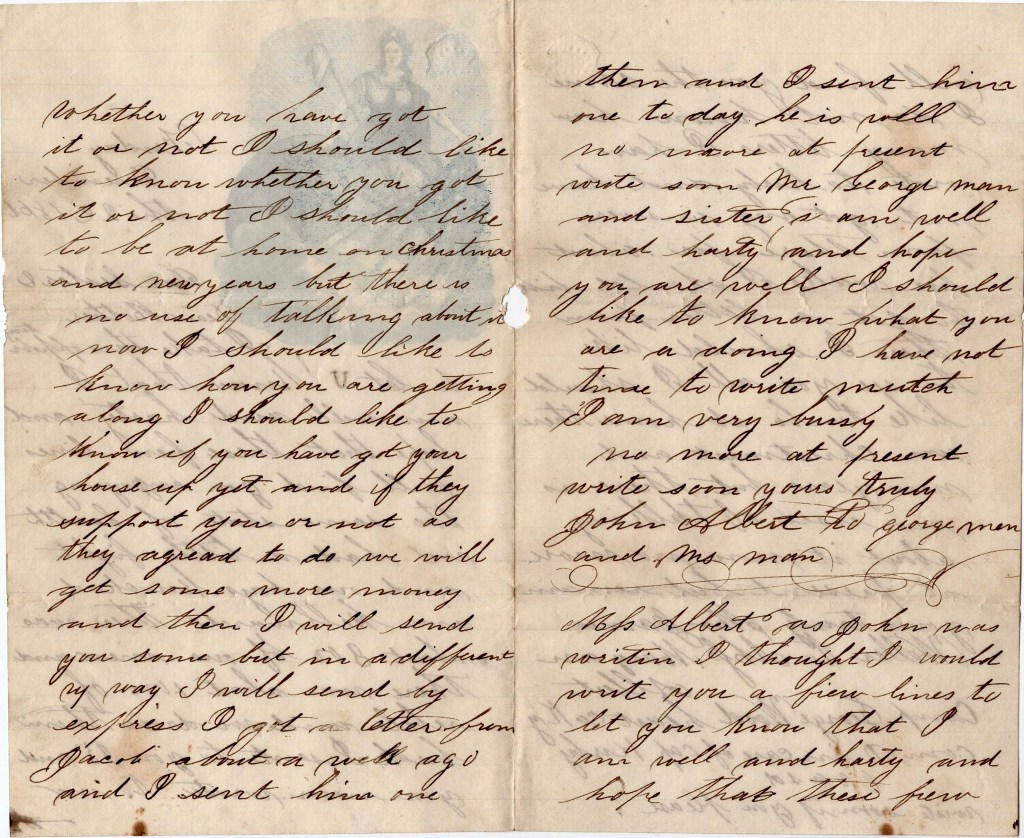 whether you have got
it or not I should like
to know whether you got
it or not I should like
to be at home on christmas
and newyears but there is
no use of talking about it
now I should like to
know how you are getting
along I should like to
know if you have got your
house up yet and if they
support you or not as
they agread to do we will
get some more money
and then I will send
you some but in a different
way I will send by
express I got a letter from
Jacob about a week ago
and I sent him one
then and I sent him
one to day he is well
no more at present
wrote soon Mr George man
and sister i am well
and harty and hope
you are well I should
like to know what you
are a doing I have not
time to write mutch
I am very bussy
no more at present
write soon yours truly
John Albert to george men
and Ms man
Mss Albert as John was
writin I thought I would
write you a fiew lines to
let you know that I
am well and harty and
hope that these fiew